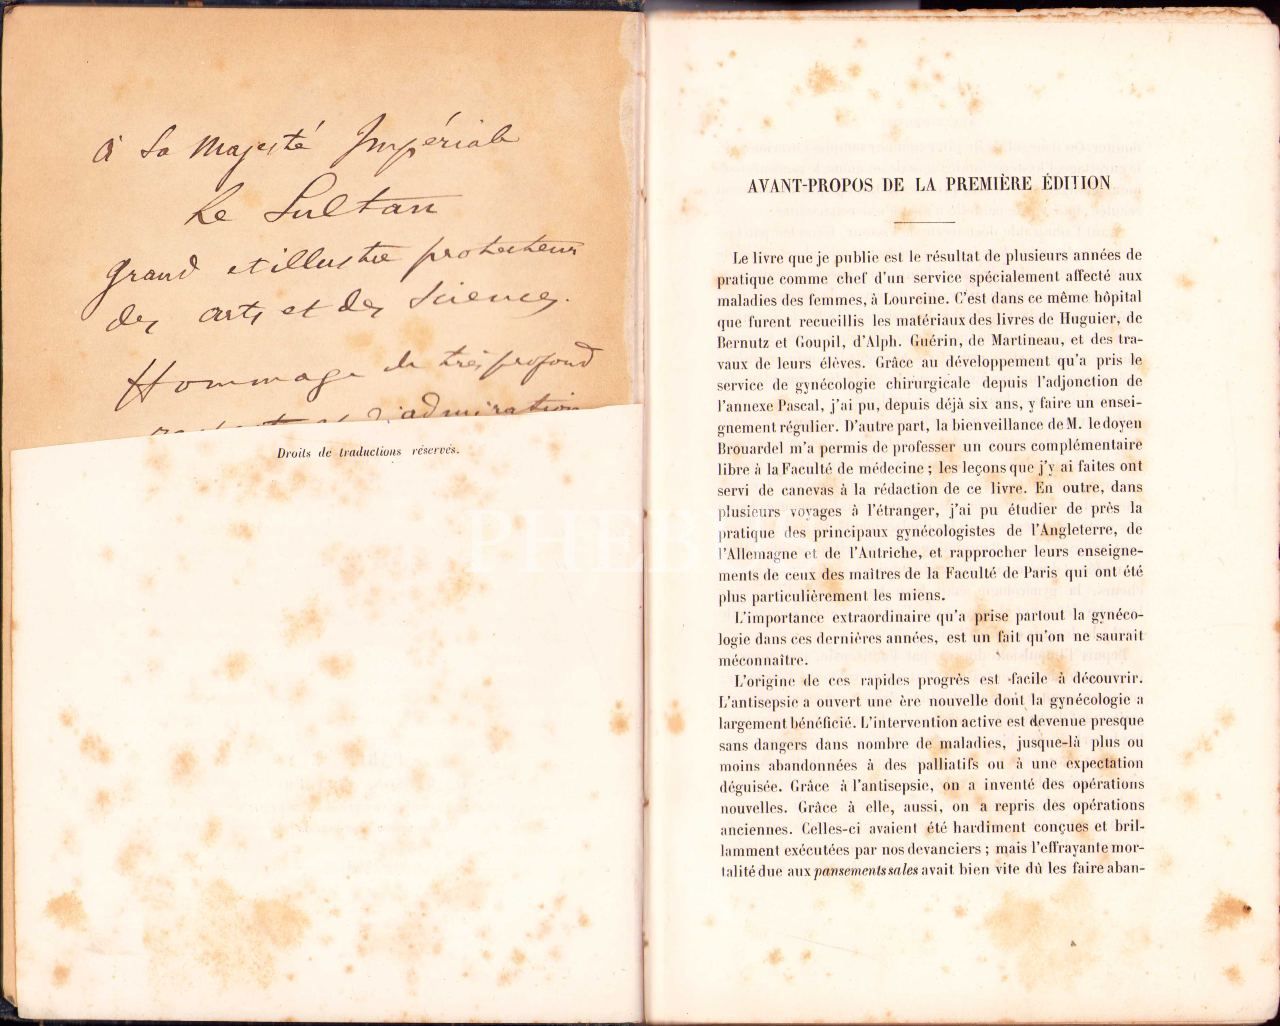 à Sa Majesté Impériale
Le Sultan
Grand et illustre protecteur
des arts et des Sciences.
Hommage de très profond
respect et d'admiration
Droits de traductions réservés.
PHEB
AVANT-PROPOS DE LA PREMIÈRE ÉDITION
Le livre que je publie est le résultat de plusieurs années de
pratique comme chef d'un service spécialement affecté aux
maladies des femmes, à Lourcine. C'est dans ce même hôpital
que furent recueillis les matériaux des livres de Huguier, de
Bernutz et Goupil, d'Alph. Guérin, de Martineau, et des tra-
vaux de leurs élèves. Grâce au développement qu'a pris le
service de gynécologie chirurgicale depuis l'adjonction de
l'annexe Pascal, j'ai pu, depuis déjà six ans, y faire un ensei-
gnement régulier. D'autre part, la bienveillance de M. le doyen
Brouardel m'a permis de professer un cours complémentaire
libre à la Faculté de médecine ; les leçons que j'y ai faites ont
servi de canevas à la rédaction de ce livre. En outre, dans
plusieurs voyages à l'étranger, j'ai pu étudier de près la
pratique des principaux gynécologistes de l'Angleterre, de
l'Allemagne et de l'Autriche, et rapprocher leurs enseigne-
ments de ceux des maîtres de la Faculté de Paris qui ont été
plus particulièrement les miens.
L'importance extraordinaire qu'a prise partout la gynéco-
logie dans ces dernières années, est un fait qu'on ne saurait
méconnaître.
L'origine de ces rapides progrès est facile à découvrir.
L'antisepsie a ouvert une ère nouvelle dont la gynécologie a
largement bénéficié. L'intervention active est devenue presque
sans dangers dans nombre de maladies, jusque-là plus ou
moins abandonnées à des palliatifs ou à une expectation
déguisée. Grâce à l'antisepsie, on a inventé des opérations
nouvelles. Grâce à elle, aussi, on a repris des opérations
anciennes. Celles-ci avaient été hardiment conçues et bril-
lamment exécutées par nos devanciers ; mais l'effrayante mor-
talité due aux pansements sales avait bien vite dû les faire aban-